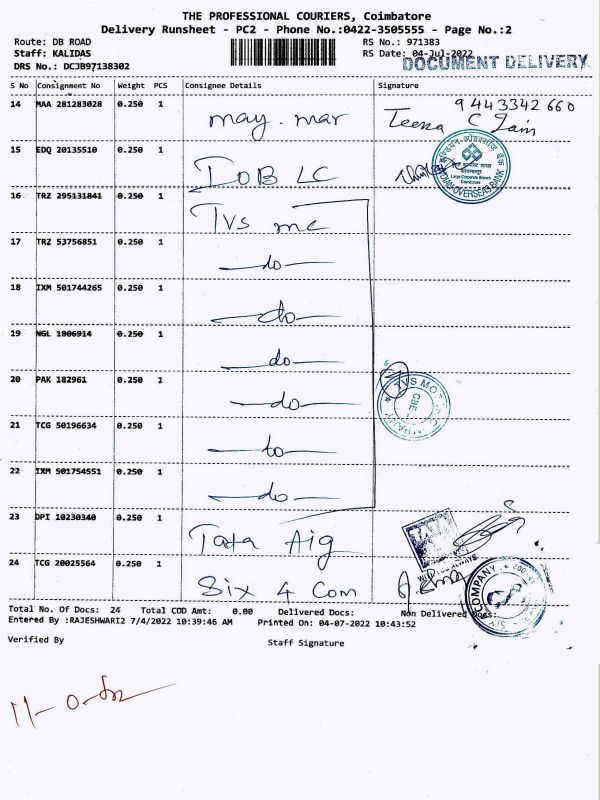 THE PROFESSIONAL COURIERS, Coimbatore
Delivery Runsheet - PC2 - Phone No.:0422-3505555 - Page No.:2
Route: DB ROAD
RS No.: 971383
Staff: KALIDAS
RS Date: 04-Jul-2022
DOCUMENT DELIVERY
DRS No.: DCJB97138302
S No Consignment No Weight PCS Consignee Details Signature
14 MAA 281283028 0.250 1 may. mar 9443342660
Teena C Jain
15 EDQ 20135510 0.250 1 IOB LC
इण्डियन ओवरसीज़ बैंक
Large Corporate Branch
INDIAN OVERSEAS BANK
16 TRZ 295131841 0.250 1 TVS mc
17 TRZ 53756851 0.250 1 do
18 IXM 501744265 0.250 1 do
19 NGL 1806914 0.250 1 do
20 PAK 182961 0.250 1 do
TVS MOTOR COMPANY
CBE
21 TCG 50196634 0.250 1 do
22 IXM 501754551 0.250 1 do
23 DPI 10230340 0.250 1 Tata Aig
WITH YOU ALWAYS
24 TCG 20025564 0.250 1 Six 4 Com
COMPANY
Total No. Of Docs: 24 Total COD Amt: 0.00 Delivered Docs: Non Delivered Docs:
Entered By :RAJESHWARI2 7/4/2022 10:39:46 AM Printed On: 04-07-2022 10:43:52
Verified By Staff Signature